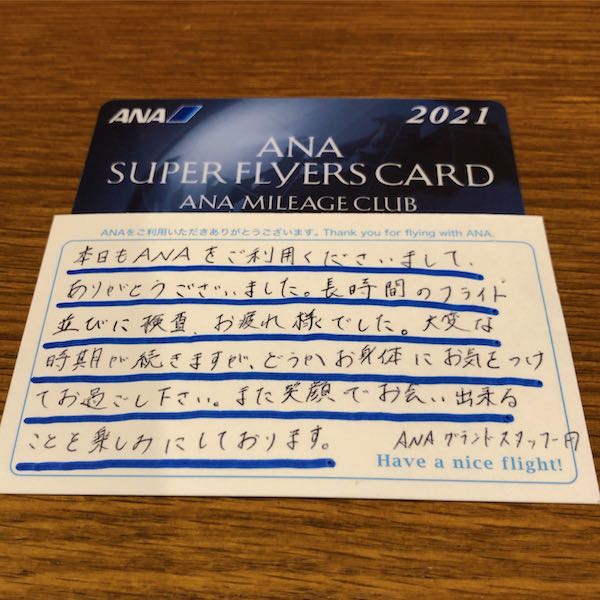 ANA 2021
ANA
SUPER FLYERS CARD
ANA MILEAGE CLUB
ANAをご利用いただきありがとうございます。Thank you for flying with ANA.
本日もANAをご利用くださいまして、
ありがとうございました。長時間のフライト
並びに検査、お疲れ様でした。大変な
時期が続きますが、どうかお身体にお気をつけ
てお過ごし下さい。また笑顔でお会い出来る
ことを楽しみにしております。
ANAグランドスタッフ一同
Have a nice flight!